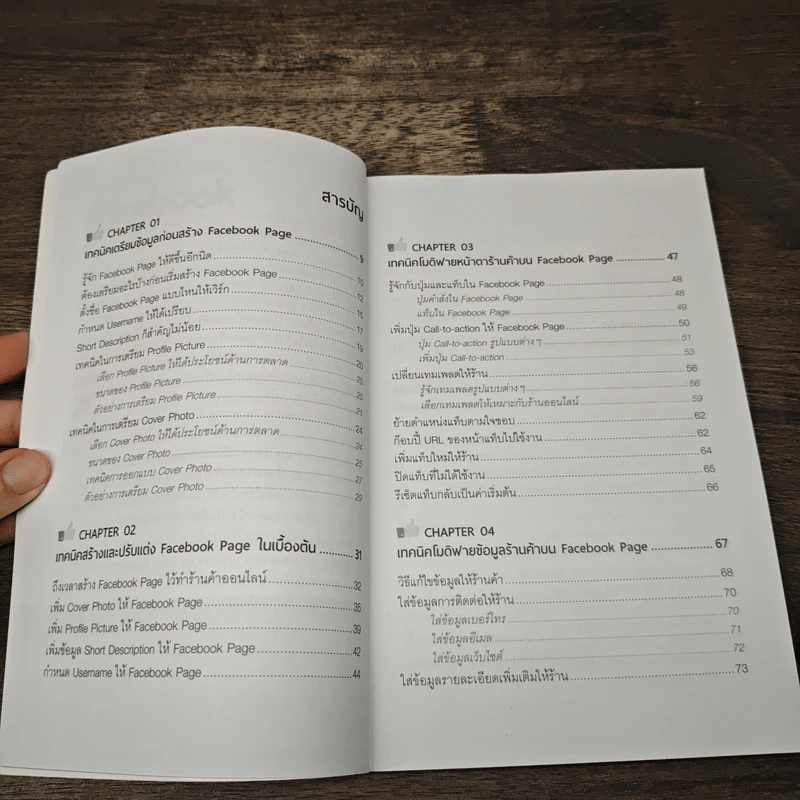 สารบัญ
CHAPTER 01
เทคนิคเตรียมข้อมูลก่อนสร้าง Facebook Page ........ 9
รู้จัก Facebook Page ให้ดีขึ้นอีกนิด ........ 10
ต้องเตรียมอะไรบ้างก่อนเริ่มสร้าง Facebook Page ........ 12
ตั้งชื่อ Facebook Page แบบไหนให้เวิร์ก ........ 15
กำหนด Username ให้ได้เปรียบ ........ 17
Short Description ก็สำคัญไม่น้อย ........ 19
เทคนิคในการเตรียม Profile Picture ........ 20
เลือก Profile Picture ให้ได้ประโยชน์ด้านการตลาด ........ 20
ขนาดของ Profile Picture ........ 20
ตัวอย่างการเตรียม Profile Picture ........ 21
เทคนิคในการเตรียม Cover Photo ........ 24
เลือก Cover Photo ให้ได้ประโยชน์ด้านการตลาด ........ 24
ขนาดของ Cover Photo ........ 25
เทคนิคการออกแบบ Cover Photo ........ 27
ตัวอย่างการเตรียม Cover Photo ........ 29
CHAPTER 02
เทคนิคสร้างและปรับแต่ง Facebook Page ในเบื้องต้น ........ 31
ถึงเวลาสร้าง Facebook Page ไว้ทำร้านค้าออนไลน์ ........ 32
เพิ่ม Cover Photo ให้ Facebook Page ........ 35
เพิ่ม Profile Picture ให้ Facebook Page ........ 39
เพิ่มข้อมูล Short Description ให้ Facebook Page ........ 42
กำหนด Username ให้ Facebook Page ........ 44
CHAPTER 03
เทคนิคโมดิฟายหน้าตาร้านค้าบน Facebook Page ........ 47
รู้จักกับปุ่มและแท็บใน Facebook Page ........ 48
ปุ่มคำสั่งใน Facebook Page ........ 48
แท็บใน Facebook Page ........ 49
เพิ่มปุ่ม Call-to-action ให้ Facebook Page ........ 50
ปุ่ม Call-to-action รูปแบบต่างๆ ........ 51
เพิ่มปุ่ม Call-to-action ........ 53
เปลี่ยนเทมเพลตให้ร้าน ........ 56
รู้จักเทมเพลตรูปแบบต่างๆ ........ 56
เลือกเทมเพลตให้เหมาะกับร้านออนไลน์ ........ 59
ย้ายตำแหน่งแท็บตามใจชอบ ........ 62
ก๊อบปี้ URL ของหน้าแท็บไปใช้งาน ........ 62
เพิ่มแท็บใหม่ให้ร้าน ........ 64
ปิดแท็บที่ไม่ได้ใช้งาน ........ 65
รีเซ็ตแท็บกลับเป็นค่าเริ่มต้น ........ 66
CHAPTER 04
เทคนิคโมดิฟายข้อมูลร้านค้าบน Facebook Page ........ 67
วิธีแก้ไขข้อมูลให้ร้านค้า ........ 68
ใส่ข้อมูลการติดต่อให้ร้าน ........ 70
ใส่ข้อมูลเบอร์โทร ........ 70
ใส่ข้อมูลอีเมล ........ 71
ใส่ข้อมูลเว็บไซต์ ........ 72
ใส่ข้อมูลรายละเอียดเพิ่มเติมให้ร้าน ........ 73